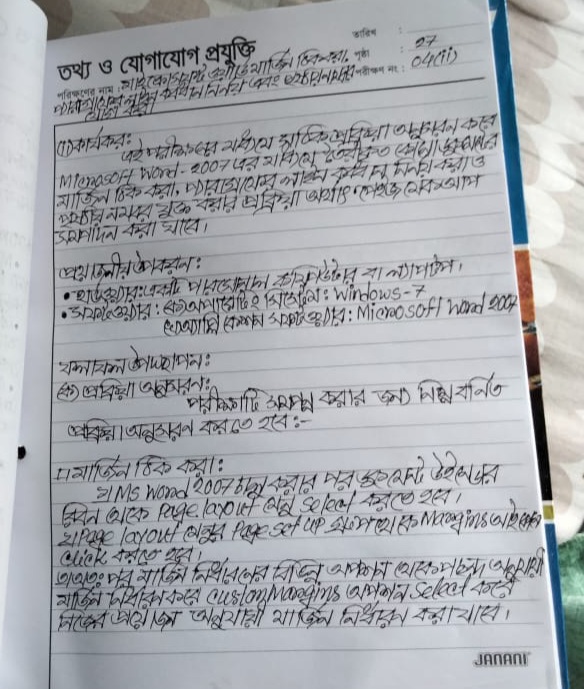 তথ্য ও যোগাযোগ প্রযুক্তি
তারিখ :
পৃষ্ঠা : 27
পরিক্ষণের নাম : মাইক্রোসফট ওয়ার্ডে মার্জিন ঠিক করা,
পরীক্ষণ নং : 04(ii)
প্যারাগ্রাফের লাইন ব্যবধান নির্ণয় এবং পৃষ্ঠায় নম্বর
যোগ করা
কার্যকর:
এই পরীক্ষণের মাধ্যমে সঠিক প্রক্রিয়া অনুসরন করে
Microsoft Word-2007 এর মাধ্যমে তৈরিকৃত কোনো ডকুমেন্টের
মার্জিন ঠিক করা, প্যারাগ্রাফের লাইন ব্যবধান নির্ণয় করা ও
পৃষ্ঠায় নম্বর যুক্ত করার প্রক্রিয়া অর্থাৎ পেইজ সেটআপ
সম্পাদন করা যাবে।
প্রয়োজনীয় উপকরন:
• হার্ডওয়্যার: একটি পারসোনাল কম্পিউটার বা ল্যাপটপ।
• সফটওয়্যার: অপারেটিং সিস্টেম: Windows-7
এ্যাপ্লিকেশন সফটওয়্যার: Microsoft Word 2007
ফলাফল উপস্থাপন:
(ক) প্রক্রিয়া অনুসরণ:
পরীক্ষাটি সম্পন্ন করার জন্য নিম্ন বর্নিত
প্রক্রিয়া অনুসরণ করতে হবে:-
১। মার্জিন ঠিক করা:
১। Ms Word 2007 চালু করার পর ডকুমেন্ট উইন্ডোর
রিবন থেকে Page layout মেনু Select করতে হবে।
২। Page layout মেনুর Page set up গ্রুপ থেকে Margins আইকনে
Click করতে হবে।
৩। অতঃপর মার্জিন নির্ধারনের বিভিন্ন অপশন থেকে পছন্দ অনুযায়ী
মার্জিন নির্ধারন করে Custom Margins অপশন Select করে
নিজের প্রয়োজন অনুযায়ী মার্জিন নির্ধারণ করা যাবে।
JANANI